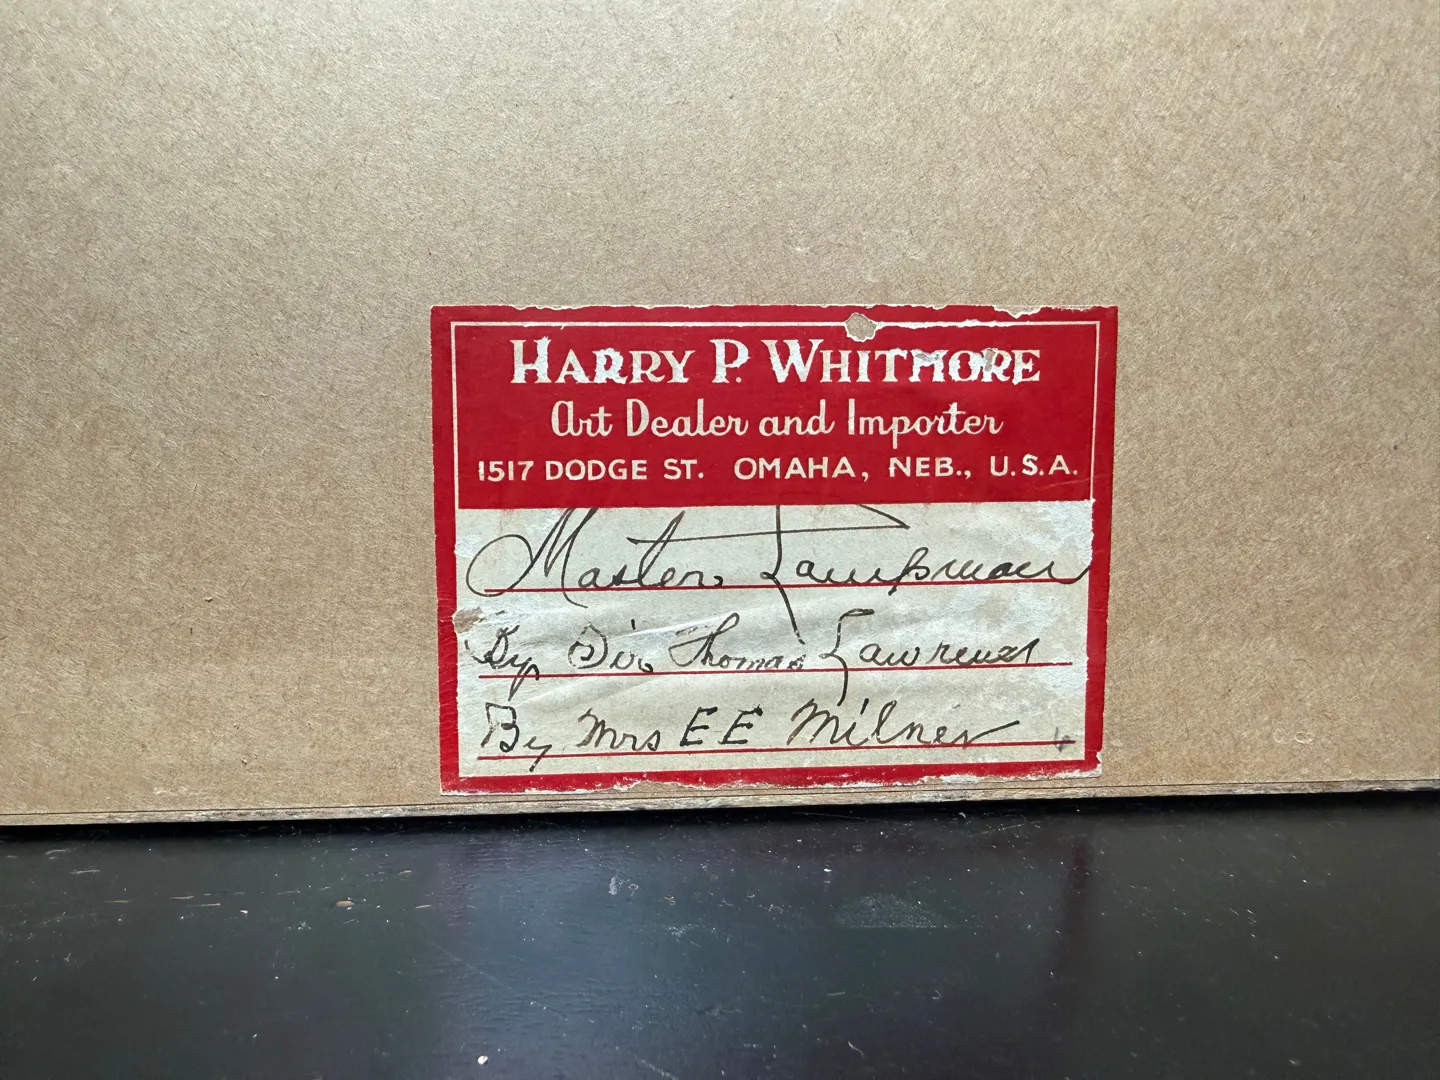 HARRY P. WHITMORE
Art Dealer and Importer
1517 DODGE ST. OMAHA, NEB., U.S.A.
Master Lampman
By Sir Thomas Lawrence
By Mrs E E Milner